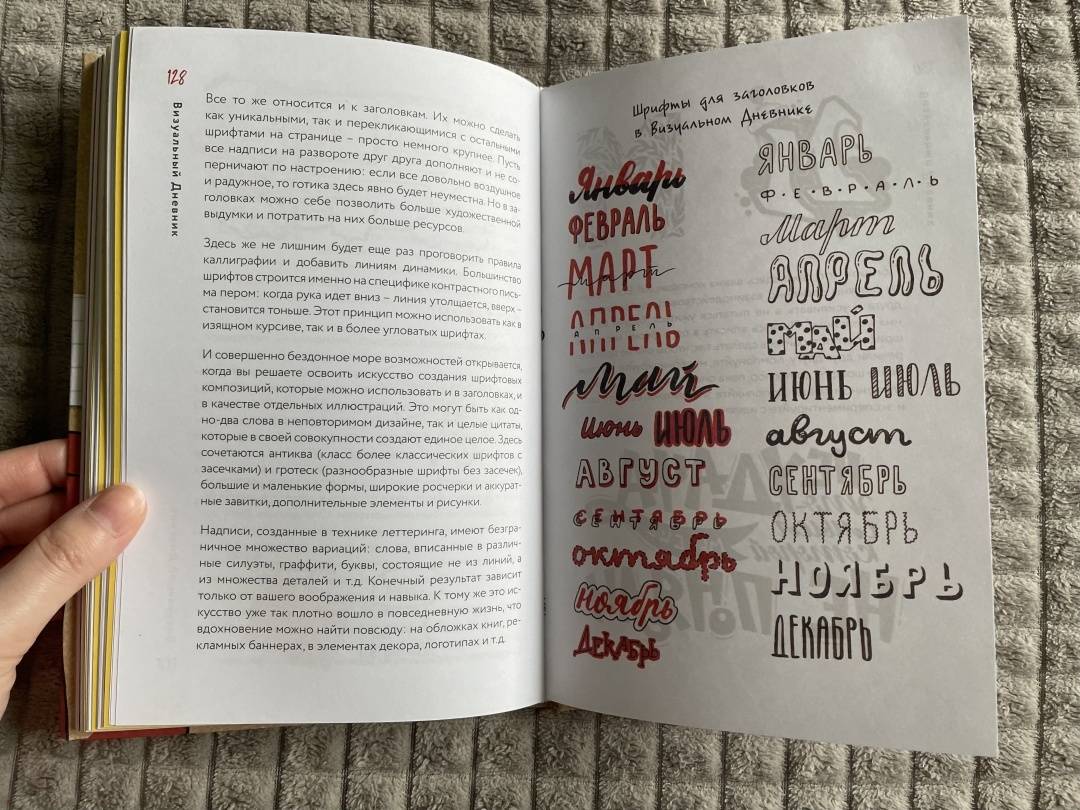 128
Визуальный Дневник
Все то же относится и к заголовкам. Их можно сделать
как уникальными, так и перекликающимися с остальными
шрифтами на странице – просто немного крупнее. Пусть
все надписи на развороте друг друга дополняют и не со-
перничают по настроению: если все довольно воздушное
и радужное, то готика здесь явно будет неуместна. Но в за-
головках можно себе позволить больше художественной
выдумки и потратить на них больше ресурсов.
Здесь же не лишним будет еще раз проговорить правила
каллиграфии и добавить линиям динамики. Большинство
шрифтов строится именно на специфике контрастного пись-
ма пером: когда рука идет вниз – линия утолщается, вверх –
становится тоньше. Этот принцип можно использовать как в
изящном курсиве, так и в более угловатых шрифтах.
И совершенно бездонное море возможностей открывается,
когда вы решаете освоить искусство создания шрифтовых
композиций, которые можно использовать и в заголовках, и
в качестве отдельных иллюстраций. Это могут быть как од-
но-два слова в неповторимом дизайне, так и целые цитаты,
которые в своей совокупности создают единое целое. Здесь
сочетаются антиква (класс более классических шрифтов с
засечками) и гротеск (разнообразные шрифты без засечек),
большие и маленькие формы, широкие росчерки и аккурат-
ные завитки, дополнительные элементы и рисунки.
Надписи, созданные в технике леттеринга, имеют безгра-
ничное множество вариаций: слова, вписанные в различ-
ные силуэты, граффити, буквы, состоящие не из линий, а
из множества деталей и т.д. Конечный результат зависит
только от вашего воображения и навыка. К тому же это ис-
кусство уже так плотно вошло в повседневную жизнь, что
вдохновение можно найти повсюду: на обложках книг, ре-
кламных баннерах, в элементах декора, логотипах и т.д.
Шрифты для заголовков
в Визуальном Дневнике
Январь
ФЕВРАЛЬ
МАРТ
март
АПРЕЛЬ
апрель
Май
Июнь ИЮЛЬ
АВГУСТ
СЕНТЯБРЬ
октябрь
Ноябрь
Декабрь
ЯНВАРЬ
Ф•Е•В•Р•А•Л•Ь
Март
АПРЕЛЬ
МАЙ
ИЮНЬ ИЮЛЬ
август
СЕНТЯБРЬ
ОКТЯБРЬ
НОЯБРЬ
ДЕКАБРЬ